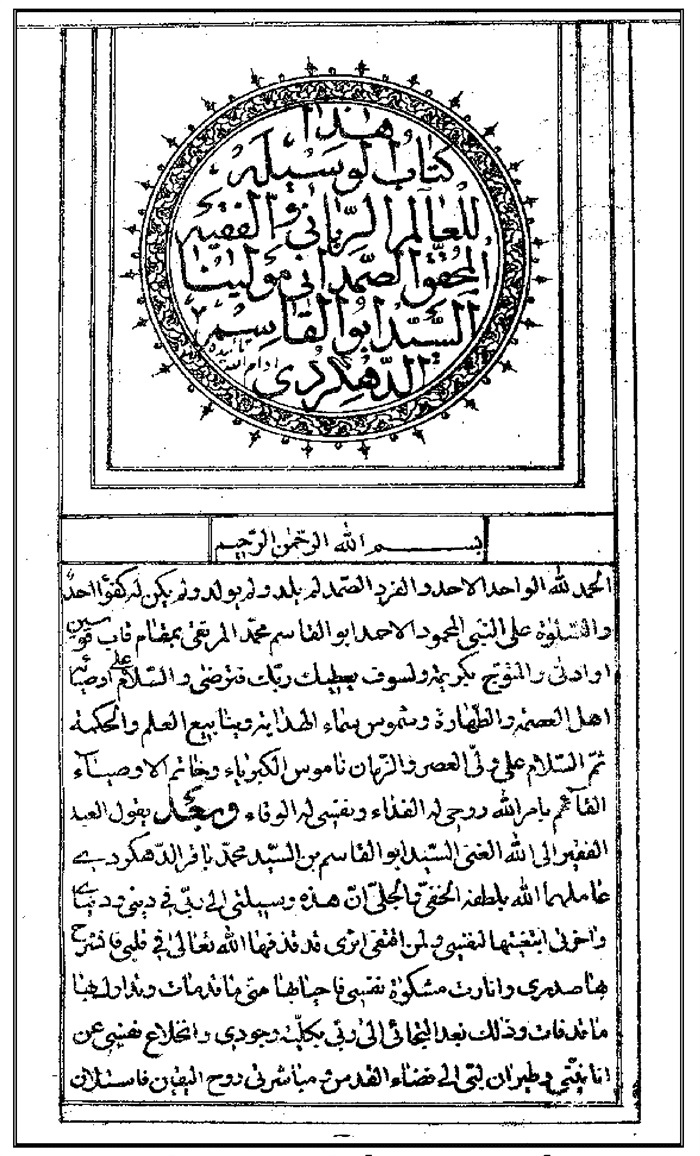 هذا
كتاب الوسيلة
للعالم الرباني والفقيه
المحقق الصمداني مولينا
السيد ابو القاسم
الدهكردي ادام الله تأييده
بسم الله الرحمن الرحيم
الحمد لله الواحد الاحد والفرد الصمد لم يلد ولم يولد ولم يكن له كفوًا احدٌ
والصلوة على النبي المحمود الاحمد ابو القاسم محمّد المرتقى بمقام قاب قوسين
او ادنى والمتوج بكريمة ولسوف يعطيك ربّك فترضى والسّلام على اوصيائه
اهل العصمة والطهارة وشموس سماء الهداية وينابيع العلم والحكمة
ثمّ السّلام على وليّ العصر والزّمان ناموس الكبرياء وخاتم الاوصياء
القائم بامر الله روحي له الفداء ونفسي له الوقاء وبعد يقول العبد
الفقير الى الله الغني السّيد ابو القاسم بن السّيد محمّد باقر الدّهكردي
عاملهما الله بلطفه الخفيّ والجليّ انّ هذه وسيلتي الى ربّي في ديني ودنياي
واخرتي ابتغيتها لنفسي ولمن اقتفى اثري قد قذفها الله تعالى في قلبي فانشرح
بها صدري وانارت مشكوة نفسي فاحياها متى ما قدمات وتداول لها
ما قدفات وذلك بعد التجائي الى ربّي بكليّة وجودي وانخلاع نفسي عن
انانيّتي وطيران لبّي الى فضاء القدس ومباشرتي روح اليقين فاسئلان